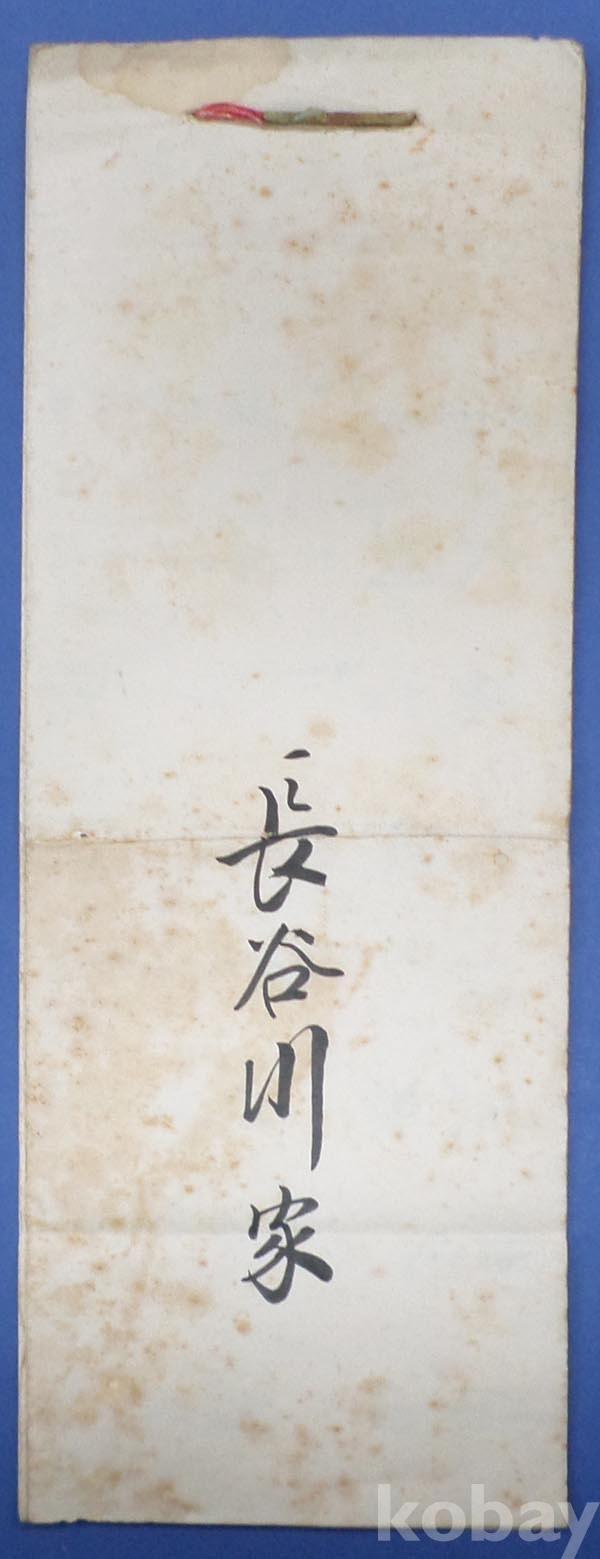 長谷川家
kobay